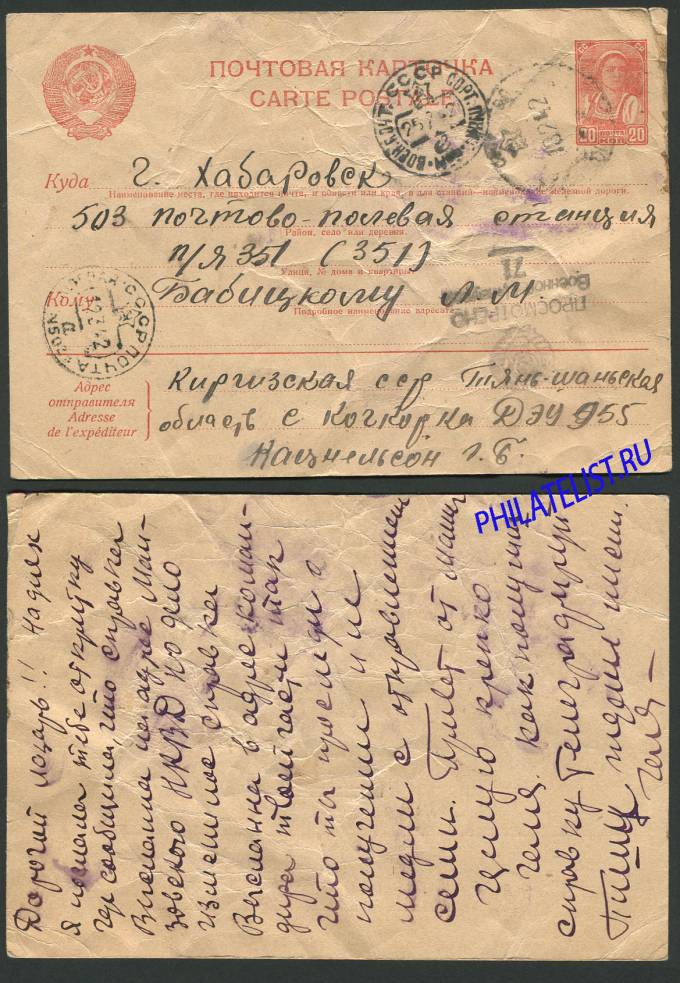 ПОЧТОВАЯ КАРТОЧКА
CARTE POSTALE
СС СР
20 ПОЧТА КОП 20
Куда г. Хабаровск
Наименование места, где находится почта, и области или края, а для станций—наименование железной дороги.
503 почтово-полевая станция
Район, село или деревня.
п/я 351 (351)
Улица, № дома и квартиры.
Кому Бабицкому Л М
Подробное наименование адресата
СССР ПОЧТА
ПРОСМОТРЕНО
Военной
71
Адрес отправителя
Adresse de l'expéditeur
Киргизская сср Тянь-шаньская
область с Кочкорка ДЭУ 955
Кацнельсон Г. Б.
PHILATELIST.RU
Дорогой Лазарь!! На днях
я послала тебе открытку
где сообщила, что справка
Выслана на адрес
НКВД по
справка
Выслана в адрес коман-
дира твоей части так
что ты проследи с
получением и не
медли с отправлением
семьи. Привет от мамы
Целую крепко
Галя. как получишь
справку Телеграфируй
Пиши ждем писем.
Галя